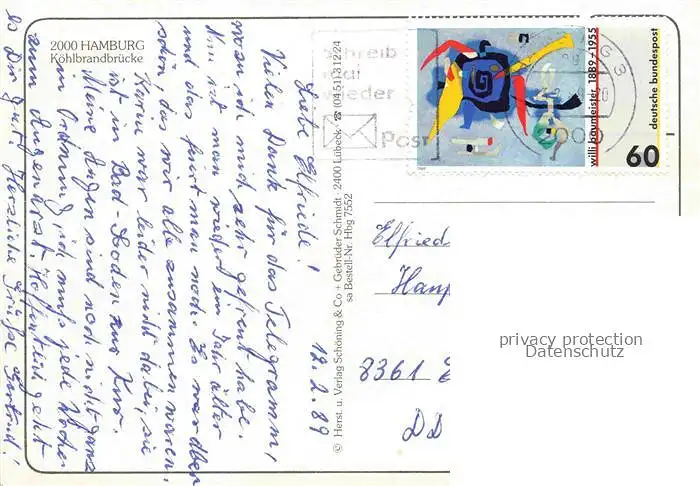 2000 HAMBURG
Köhlbrandbrücke
12.2.89
Liebe Elfriede!
Vielen Dank für das Telegramm,
worüber ich mich sehr gefreut habe.
Nun ist man wieder ein Jahr älter
und das feiert man noch. Es war aber
schön das wir alle zusammen waren.
Karin war leider nicht dabei, sie
ist in Bad-Soden zur Kur.
Meine Augen sind noch nicht ganz
in Ordnung, ich muß jede Woche
zum Augenarzt. Hoffentlich geht
es Dir gut. Herzliche Grüße
© Herst. u. Verlag Schöning & Co + Gebrüder Schmidt · 2400 Lübeck · ☎ (04 51) 3 12 24
sa Bestell-Nr. Hbg 7552
Schreib
mal
wieder
Post
willi baumeister 1889-1955
deutsche bundespost
60
Elfried
8361
DD
privacy protection
Datenschutz